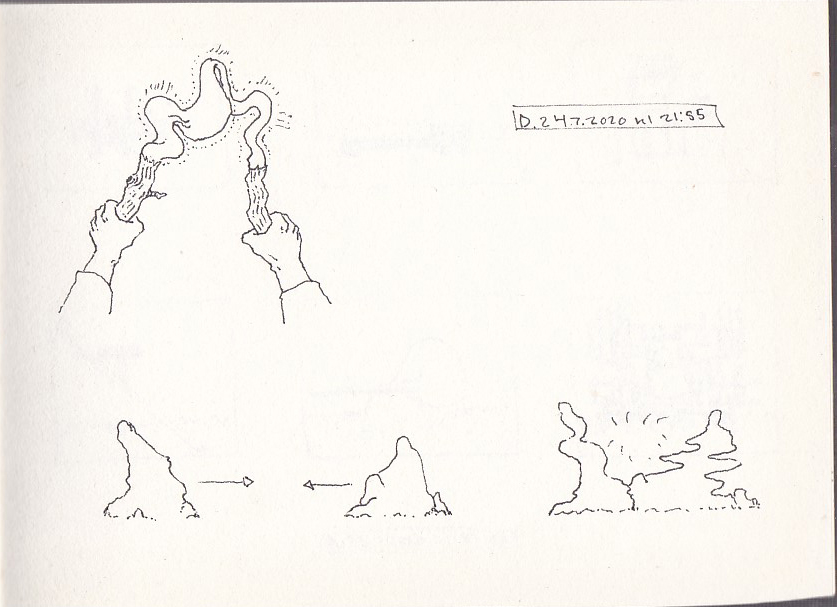 D. 24.7.2020 kl 21:55